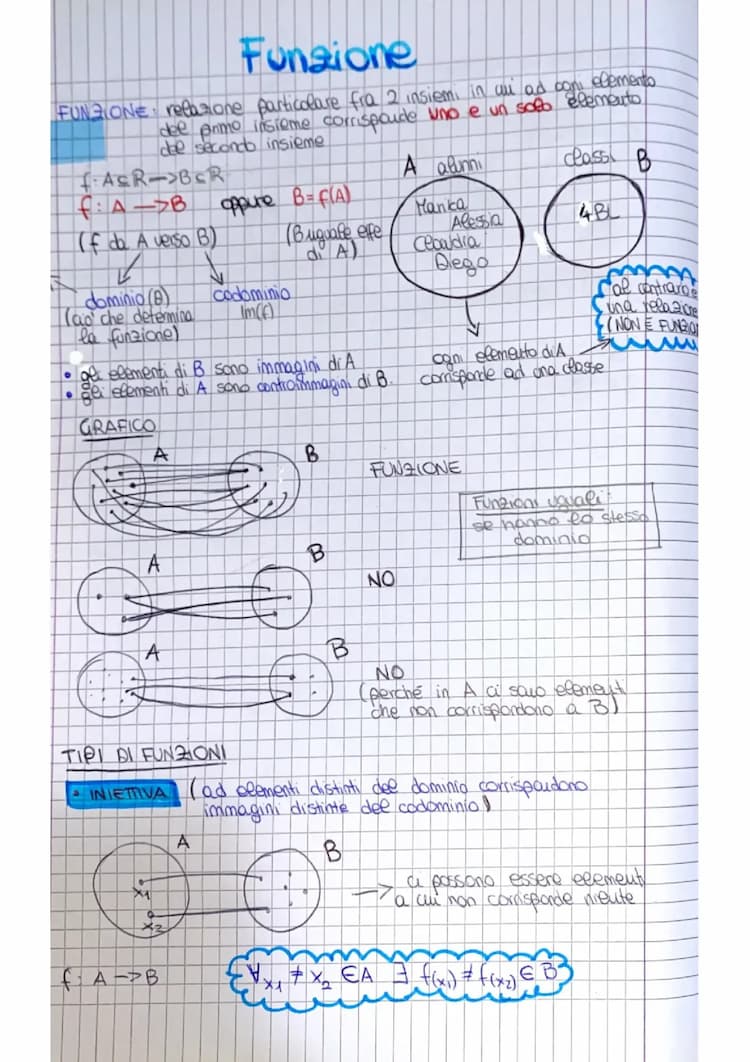 Funzione
FUNZIONE: relazione particolare fra 2 insiemi in cui ad ogni elemento
del primo insieme corrisponde uno e un solo elemento
del secondo insieme
A alunni
classi B
f: A⊆R—>B⊆R
f: A —>B oppure B=f(A)
(f da A verso B)
(B uguale effe
di A)
Marika
Alessia
Claudia
Diego
4BL
dominio (D)
(cio' che determina
la funzione)
codominio
Im(f)
al contrario è
una relazione
(NON È FUNZION
• gli elementi di B sono immagini di A
• gli elementi di A sono controimmagini di B.
ogni elemento di A
corrisponde ad una classe
GRAFICO
A
B
FUNZIONE
Funzioni uguali:
se hanno lo stesso
dominio
A
B
NO
A
B
NO
(perché in A ci sono elementi
che non corrispondono a B)
TIPI DI FUNZIONI
• INIETTIVA (ad elementi distinti del dominio corrispondono
immagini distinte del codominio)
A
B
x1
x2
—> ci possono essere elementi
a cui non corrisponde niente
f: A —>B
∀x1 ≠ x2 ∈A ∃ f(x1) ≠ f(x2) ∈ B